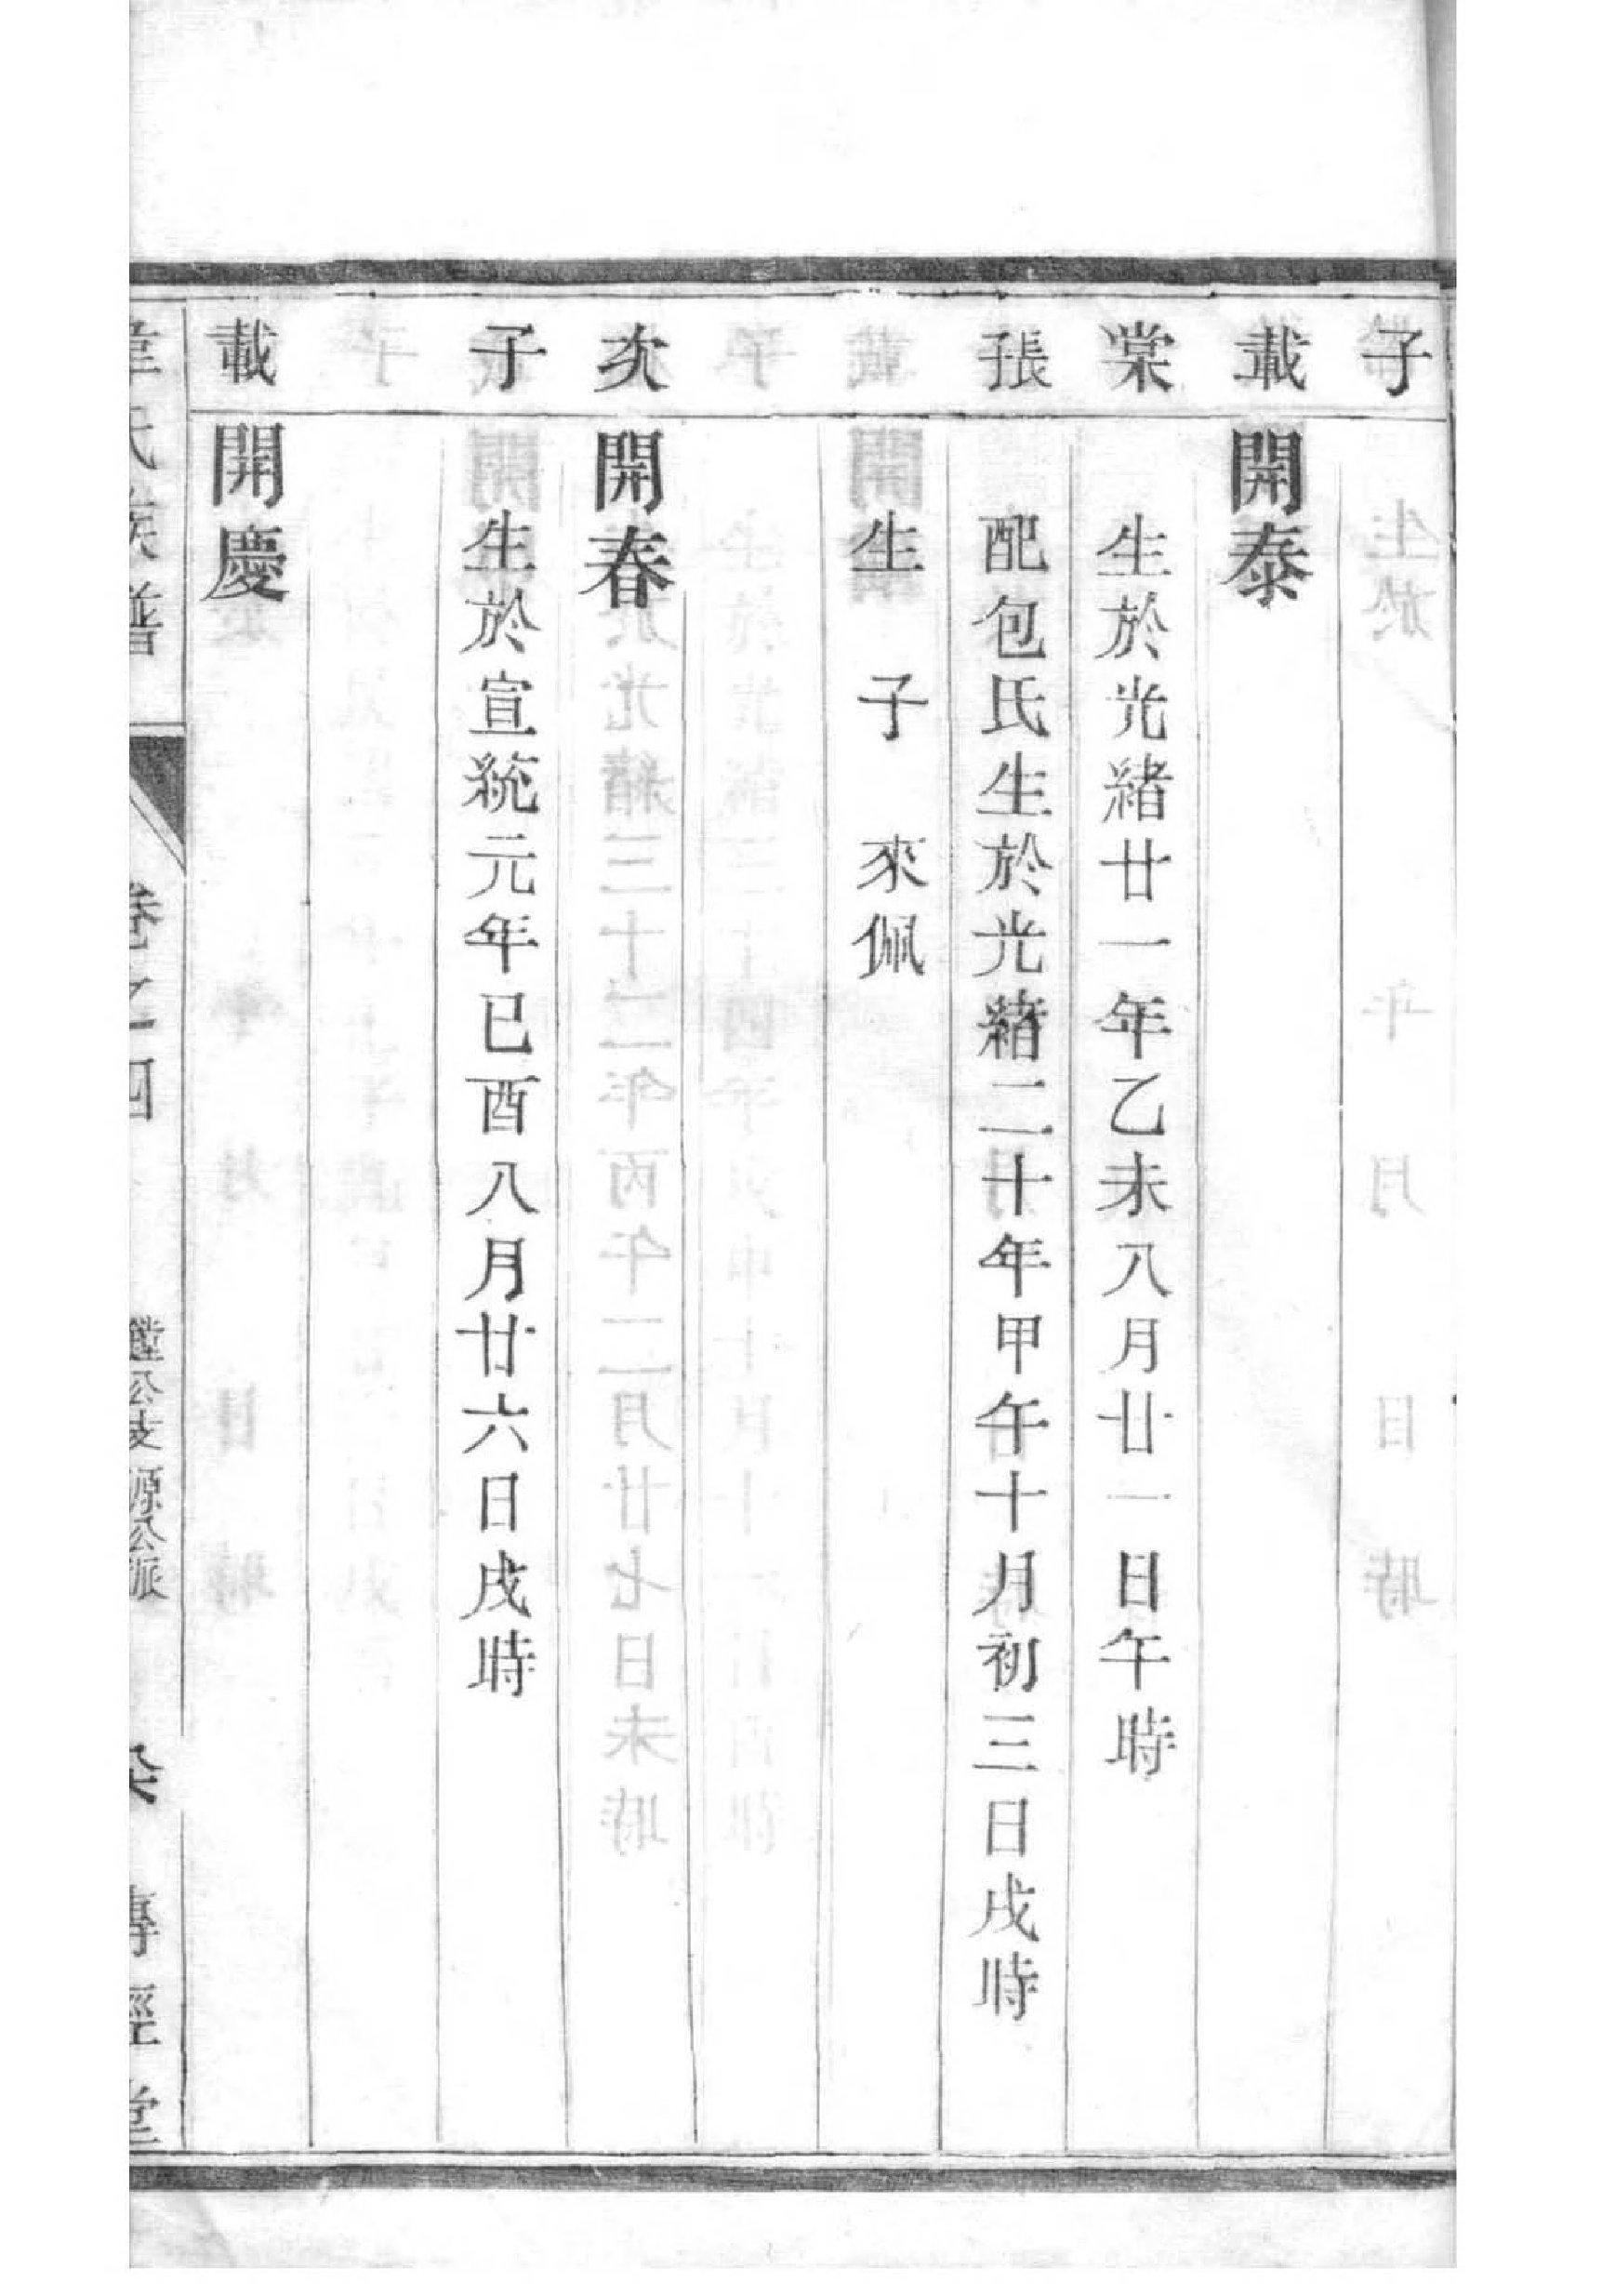 子
載 開泰
棠 生於光緒廿一年乙未八月廿一日午時
張 配包氏生於光緒二十年甲午十月初三日戌時
生 子 來佩
次 開春
子 生於宣統元年己酉八月廿六日戌時
載 開慶
韋氏族譜 卷之四 鏜公支 源公派 傳經堂